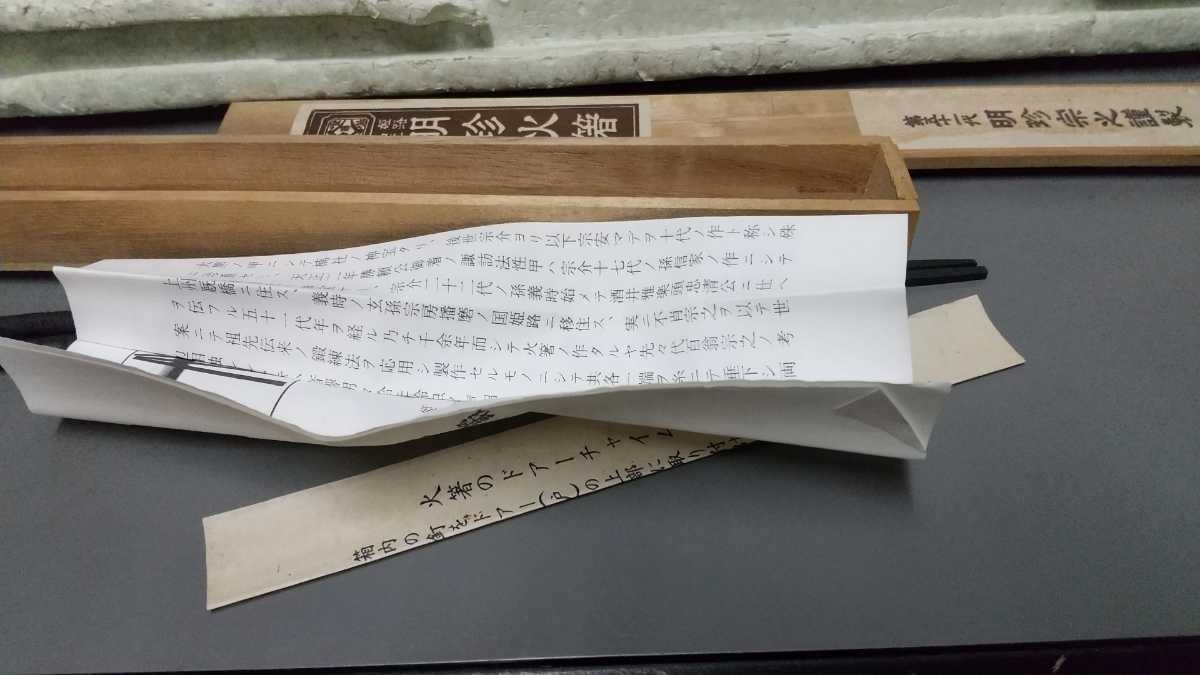 明珍火箸
第五十一代 明珍宗之謹製
ノ神宝タリ、後世宗介ヨリ以下宗安マデヲ十代ノ作ト称シ殊
年勝頼公御著ノ諏訪法性甲ハ宗介十七代ノ孫信家ノ作ニシテ
宗介二十二代ノ孫義時始メテ酒井雅楽頭忠清公ニ仕ヘ
上州厩橋ニ住ス、義時ノ玄孫宗房播磨ノ国姫路ニ移住ス、実ニ不肖宗之ヲ以テ世
ヲ伝フル五十一代年ヲ経ル乃チ千余年而シテ火箸ノ作タルヤ先々代百翁宗之ノ考
案ニテ祖先伝来ノ鍛練法ヲ応用シ製作セルモノニシテ共各一端ヲ糸ニテ垂下シ両
火箸のドアーチャイム
箱内の釘をドアー(戸)の上部に取り付